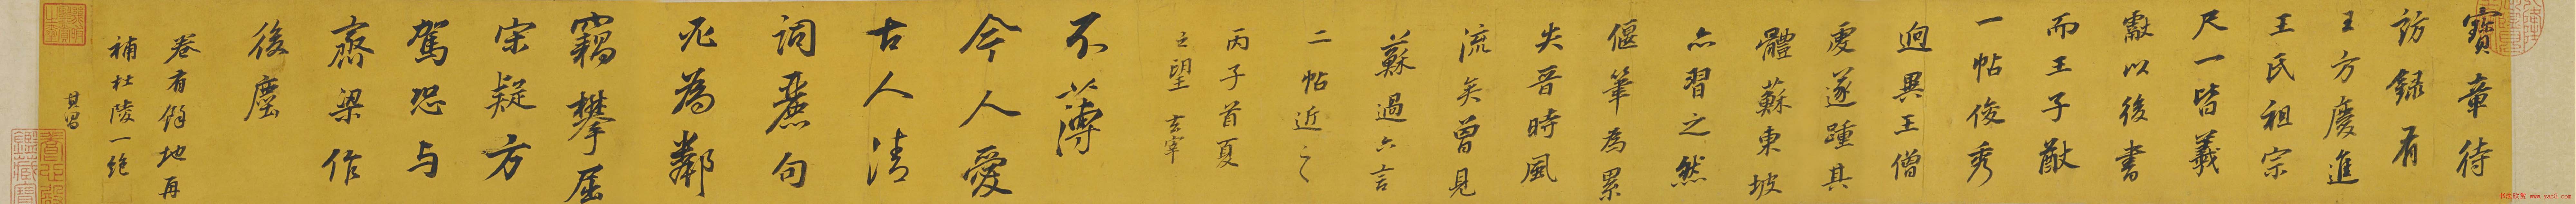 寶章待
訪録有
王方慶進
王氏祖宗
尺一皆羲
獻以後書
而王子猷
一帖俊秀
迥異王僧
虔遂踵其
體蘇東坡
亦習之然
偃筆為累
失晉時風
流矣曾見
蘇過六言
二帖近之
丙子首夏
之望 玄宰
不薄
今人愛
古人清
詞麗句
必為鄰
竊攀屈
宋疑方
駕恐与
齋梁作
後塵
卷有餘地再
補杜陵一絶
其昌
书法欣赏 www.yac8.com